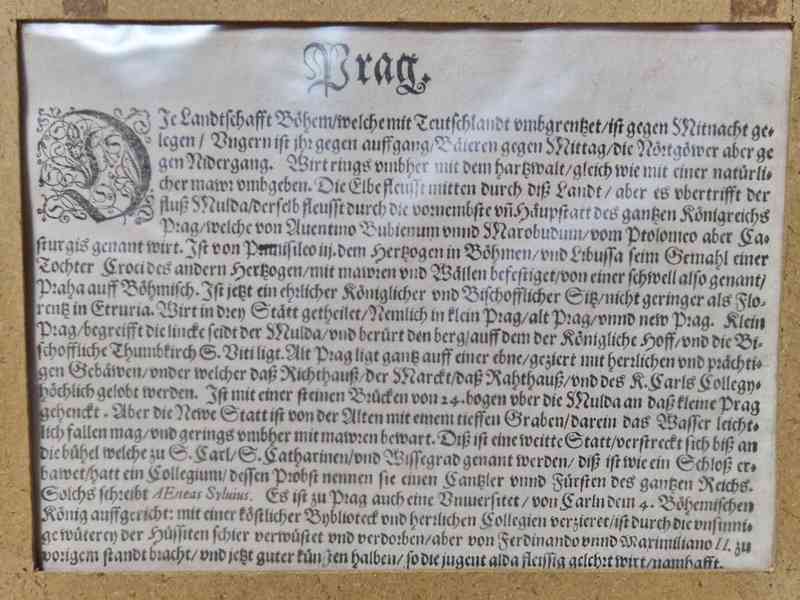 Prag.
DJe Landtschafft Böhem/welche mit Teutschlandt vmbgrentzet/ist gegen Mitnacht ge-
legen/ Vngern ist jhr gegen auffgang/Bäieren gegen Mittag/die Nörtgöwer aber ge
gen Nidergang. Wirt rings vmbher mit dem hartzwalt/gleich wie mit einer natürli-
cher mawr vmbgeben. Die Elbe fleusst mitten durch diß Landt/ aber es vbertrifft der
fluß Mulda/derselb fleusst durch die vornembste vñ Häupstatt des gantzen Königreichs
Prag/welche von Auentino Bubienum vnnd Marobudum/vom Ptolomeo aber Ca-
sturgis genant wirt. Ist von Primisleo iij.dem Hertzogen in Böhmen/vnd Libussa seim Gemahl einer
Tochter Croci des andern Hertzogen/mit mawren vnd Wällen befestiget/von einer schwell also genant/
Praha auff Böhmisch. Ist jetzt ein ehrlicher Königlicher vnd Bischofflicher Sitz/nicht geringer als Flo-
rentz in Etruria. Wirt in drey Stätt getheilet/Nemlich in klein Prag/alt Prag/vnnd new Prag. Klein
Prag/begreifft die lincke seidt der Mulda/vnd berürt den berg/auff dem der Königliche Hoff/vnd die Bi-
schoffliche Thumbkirch S. Viti ligt. Alt Prag ligt gantz auff einer ebne/geziert mit herrlichen vnd prächti-
gen Gebäwen/vnder welcher daß Richthauß/der Marckt/daß Rahthauß/vnd des K. Carls Collegy-
höchlich gelobt werden. Ist mit einer steinen Brücken von 24. bogen vber die Mulda an daß kleine Prag
gehenckt. Aber die Newe Statt ist von der Alten mit einem tieffen Graben/darein das Wasser leicht-
lich fallen mag/vnd gerings vmbher mit mawren bewart. Diß ist eine weitte Statt/verstreckt sich biß an
die bühel welche zu S. Carl/S. Catharinen/vnd Wissegrad genant werden/ diß ist wie ein Schloß er-
bawet/hatt ein Collegium/dessen Probst nennen sie einen Cantzler vnnd Fürsten des gantzen Reichs.
Solchs schreibt AEneas Syluius. Es ist zu Prag auch eine Vniuersitet/von Carln dem 4. Böhemischen
König auffgericht: mit einer köstlicher Bybliotеck vnd herrlichen Collegien verzieret/ist durch die vnsinni-
ge wüterey der Hüssiten schier verwüstet vnd verdorben/aber von Ferdinando vnnd Maximiliano II. zu
vorigem standt bracht/vnd jetzt guter künsten halben/so die jugent alda fleissig gelehrt wirt/namhafft.